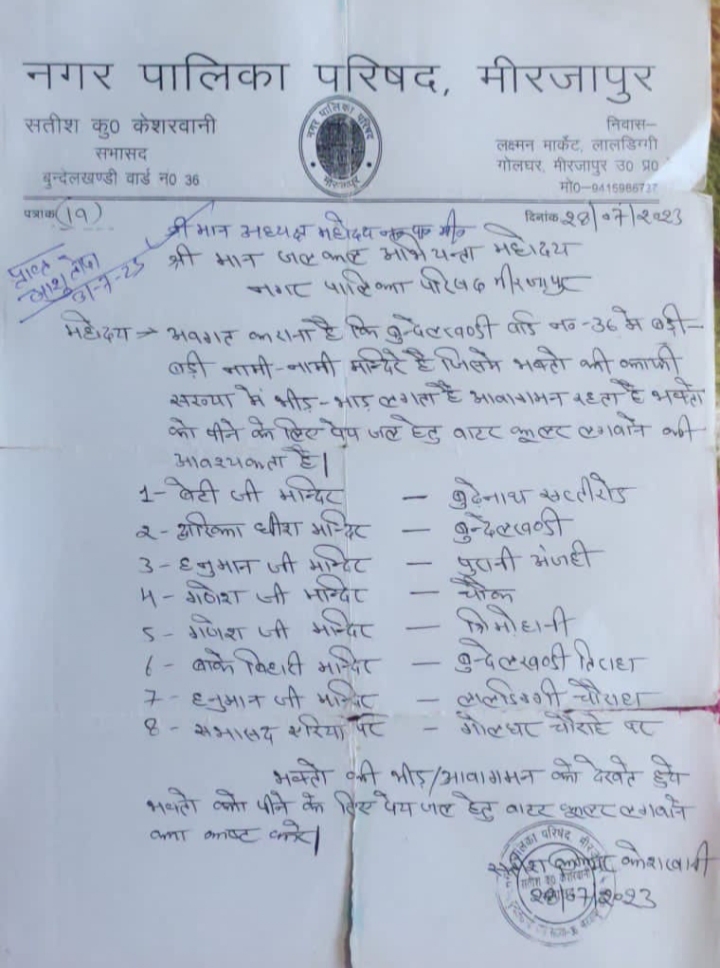 नगर पालिका परिषद, मीरजापुर
सतीश कु0 केशरवानी
सभासद
बुन्देलखण्डी वार्ड न0 36
नगर पालिका परिषद
मीरजापुर
निवास–
लक्ष्मन मार्केट, लालडिग्गी
गोलघर, मीरजापुर उ0 प्र0
मो0–9415966737
पत्रांक (19)
दिनांक 28/07/2023
श्री मान अध्यक्ष महोदय न० पा० मी०
श्री मान जलकल अभियन्ता महोदय
नगर पालिका परिषद मीरजापुर
प्राप्त
31-7-23
महोदय → अवगत कराना है कि बुन्देलखण्डी वार्ड न०-36 मे बड़ी-
बड़ी नामी-नामी मन्दिरे है जिसमे भक्तो की काफी
सख्या में भीड़-भाड़ लगता है आवागमन रहता है भक्तो
को पीने के लिए पेय जल हेतु वाटर कूलर लगवाने की
आवश्यकता है।
1- बेटी जी मन्दिर — बुढ़ेनाथ सत्तीरोड
2- द्वारिका धीश मन्दिर — बुन्देलखण्डी
3- हनुमान जी मन्दिर — पुरानी अंजही
4- गणेश जी मन्दिर — चौक
5- गणेश जी मन्दिर — त्रिमोहानी
6- बाके बिहारी मन्दिर — बुन्देलखण्डी तिराहा
7- हनुमान जी मन्दिर — लालडिग्गी चौराहा
8- सभासद एरिया पर — गोलघर चौराहे पर
भक्तो की भीड़/आवागमन को देखते हुये
भक्तो को पीने के लिए पेय जल हेतु वाटर कूलर लगवाने
का कष्ट करे।
सतीश कुमार केशरवानी
28/07/2023
सतीश कु0 केशरवानी